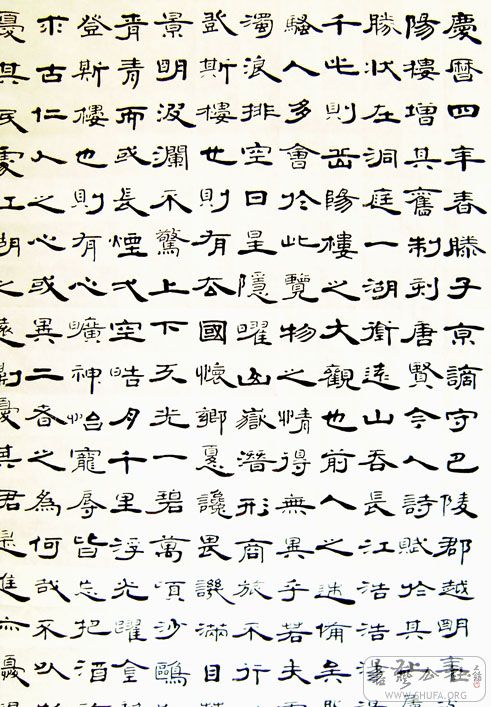 慶曆四年春滕子京謫守巴陵郡越明
陽樓增其舊制刻唐賢今人詩賦於其
勝狀在洞庭一湖銜遠山吞長江浩浩湯
千此則岳陽樓之大觀也前人之述備矣
騷人多會於此覽物之情得無異乎若夫
濁浪排空日星隱曜山嶽潛形商旅不行
登斯樓也則有去國懷鄉憂讒畏譏滿目
景明波瀾不驚上下天光一碧萬頃沙鷗
青青而或長煙弌空皓月千里浮光躍金
登斯樓也則有心曠神怡寵辱皆忘把酒
求古仁人之心或異二者之為何哉不以
憂其民處江湖之遠則憂其君是進亦憂
WWW.SHUFA.ORG